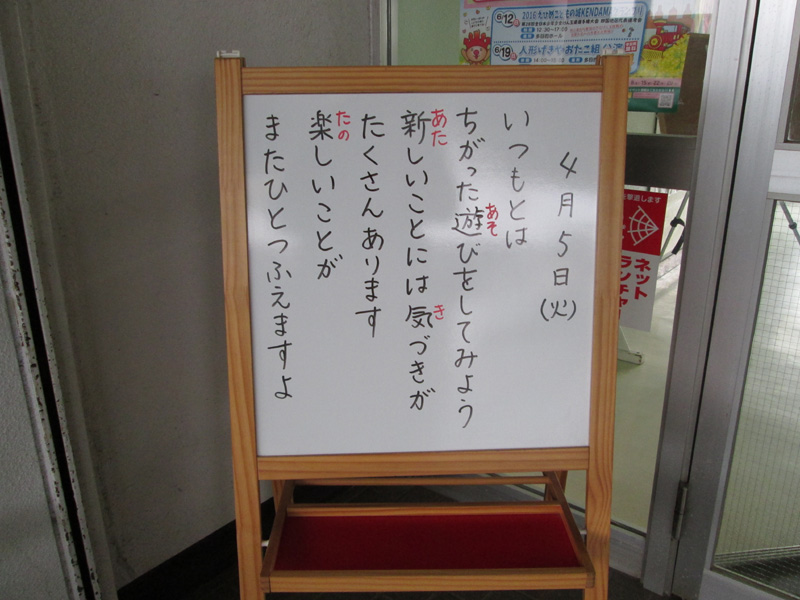 4月5日(火)
いつもとは
ちがった遊びをしてみよう
あそ
新しいことには気づきが
あた
き
たくさんあります
楽しいことが
たの
またひとつふえますよ
6/12
6/19
人形げきやおたこ組 公演
ネット
ランチャー